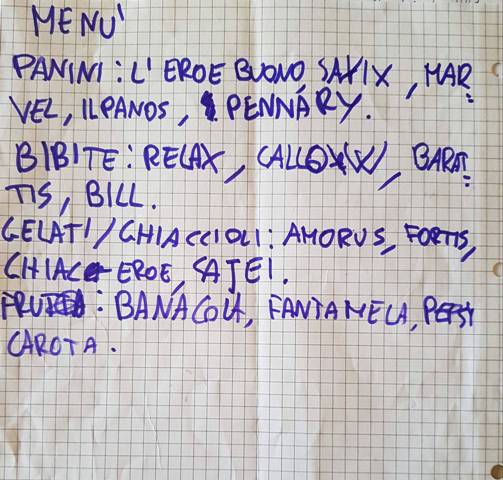 MENU'
PANINI: L'EROE BUONO SAYIX, MAR
VEL, ILPANOS, PENNÁRY.
BIBITE: RELAX, BARAT
TIS, BILL.
GELATI/GHIACCIOLI: AMORUS, FORTIS,
GHIAC EROE, SATEI.
: BANACOLA, FANTAMELA, PEPSI
CAROTA.